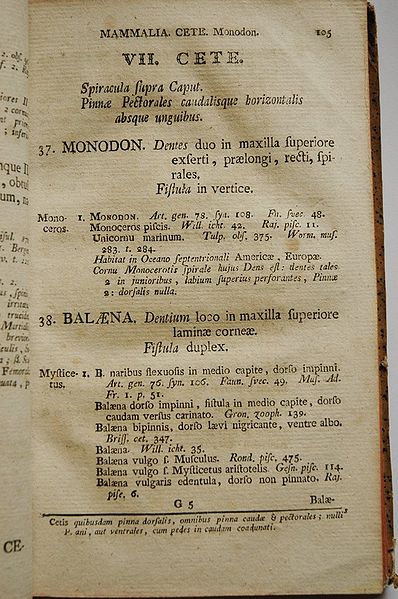 MAMMALIA. CETE. Monodon. 105
VII. CETE.
Spiracula ſupra Caput.
Pinnæ Pectorales caudalisque horizontalis
absque unguibus.
37. MONODON. Dentes duo in maxilla ſuperiore
exſerti, prælongi, recti, ſpi-
rales.
Fiſtula in vertice.
Mono- 1. MONODON. Art. gen. 78. ſyn. 108. Fn. ſvec. 48.
ceros. Monoceros piſcis. Will. icht. 42. Raj. piſc. 11.
Unicornu marinum. Tulp. obſ. 375. Worm. muſ.
283. t. 284.
Habitat in Oceano ſeptentrionali Americæ, Europæ.
Cornu Monocerotis ſpirale hujus Dens eſt: dentes tales
2 in junioribus, labium ſuperius perforantes, Pinnæ
2: dorſalis nulla.
38. BALÆNA. Dentium loco in maxilla ſuperiore
laminæ corneæ.
Fiſtula duplex.
Myſtice- 1. B. naribus flexuoſis in medio capite, dorſo impinni.
tus. Art. gen. 76. ſyn. 106. Faun. ſvec. 49. Muſ. Ad.
Fr. 1. p. 51.
Balæna dorſo impinni, fiſtula in medio capite, dorſo
caudam verſus carinato. Gron. zooph. 139.
Balæna bipinnis, dorſo lævi nigricante, ventre albo.
Briſſ. cet. 347.
Balæna. Will. icht. 35.
Balæna vulgo ſ. Musculus. Rond. piſc. 475.
Balæna vulgo ſ. Myſticetus ariſtotelis. Geſn. piſc. 114.
Balæna vulgaris edentula, dorſo non pinnato. Raj.
piſc. 6.
G 5 Balæ-
Cetis quibusdam pinna dorſalis, omnibus pinna caudæ & pectorales; nulli
P. ani, aut ventrales, cum pedes in caudam coadunati.
CE-